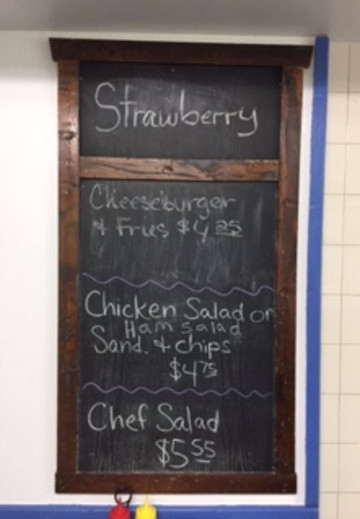 Strawberry
Cheeseburger
& Fries $4.25
Chicken Salad or
Ham salad
Sand. & chips
$4.75
Chef Salad
$5.55